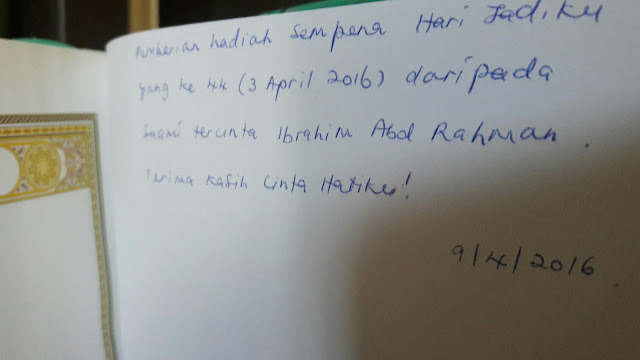 Pemberian hadiah sempena Hari Jadiku
yang ke 44 (3 April 2016) daripada
Suami tercinta Ibrahim Abd Rahman.
Terima Kasih Cinta Hatiku!
9/4/2016